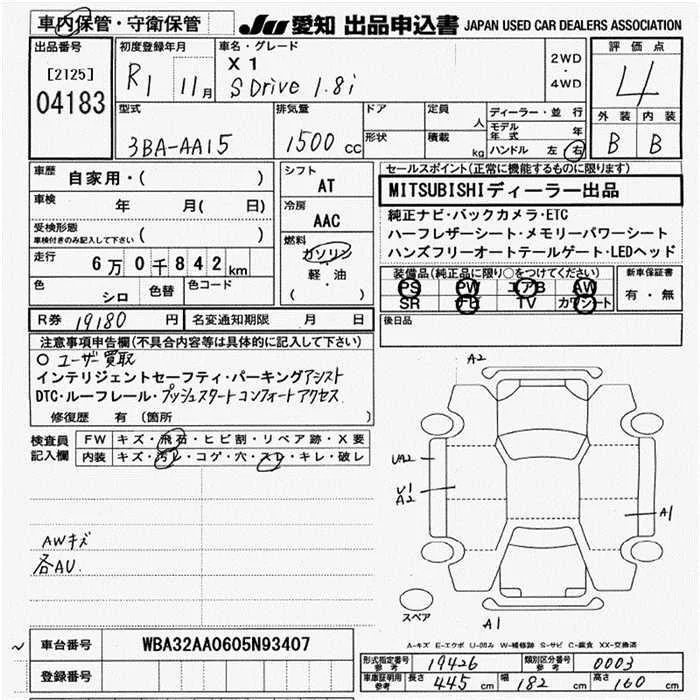 車内保管・守衛保管
JU 愛知 出品申込書 JAPAN USED CAR DEALERS ASSOCIATION
出品番号
[2125]
04183
初度登録年月
R1 11月
車名・グレード
X1
SDrive 1.8i
2WD
・
4WD
評価点
4
外装 内装
B B
型式
3BA-AA15
排気量
1500 CC
ドア
形状
定員 人
積載 kg
ディーラー・並行
モデル年式 年
ハンドル 左 右
車歴
自家用・( )
車検 年 月( 日)
受検形態
車検付きのみ記入して下さい ( )
走行 6万0千842km
色 シロ 色替 色コード
シフト
AT
冷房
AAC
燃料
ガソリン
軽・油
( ・ )
セールスポイント(正常に機能するものに限ります)
MITSUBISHIディーラー出品
純正ナビ・バックカメラ・ETC
ハーフレザーシート・メモリーパワーシート
ハンズフリーオートテールゲート・LEDヘッド
装備品(純正品に限り○をつけてください)
PS PW エアB AW
SR ナビ TV カワシート
新車保証書
有・無
R券 19180 円 名変通知期限 月 日
後日品
注意事項申告欄(不具合内容等は具体的に記入して下さい)
○ ユーザー買取
インテリジェントセーフティ・パーキングアシスト
DTC・ルーフレール・プッシュスタート コンフォートアクセス
修復歴 有 (箇所 )
検査員
記入欄
FW キズ・飛石・ヒビ割・リペア跡・X要
内装 キズ・汚レ・コゲ・穴・スレ・キレ・破レ
AWキズ
各AU
A2
UA2
U1
A2
A1
スペア
A1
A-キズ E-エクボ U-凹み W-補修跡 S-サビ C-腐食 XX-交換済
~ 車台番号 WBA32AA0605N93407
登録番号
形式指定番号 参考 19426 類別区分番号 参考 0003
車庫証明用 参考 長さ 445 cm 幅 182 cm 高さ 160 cm